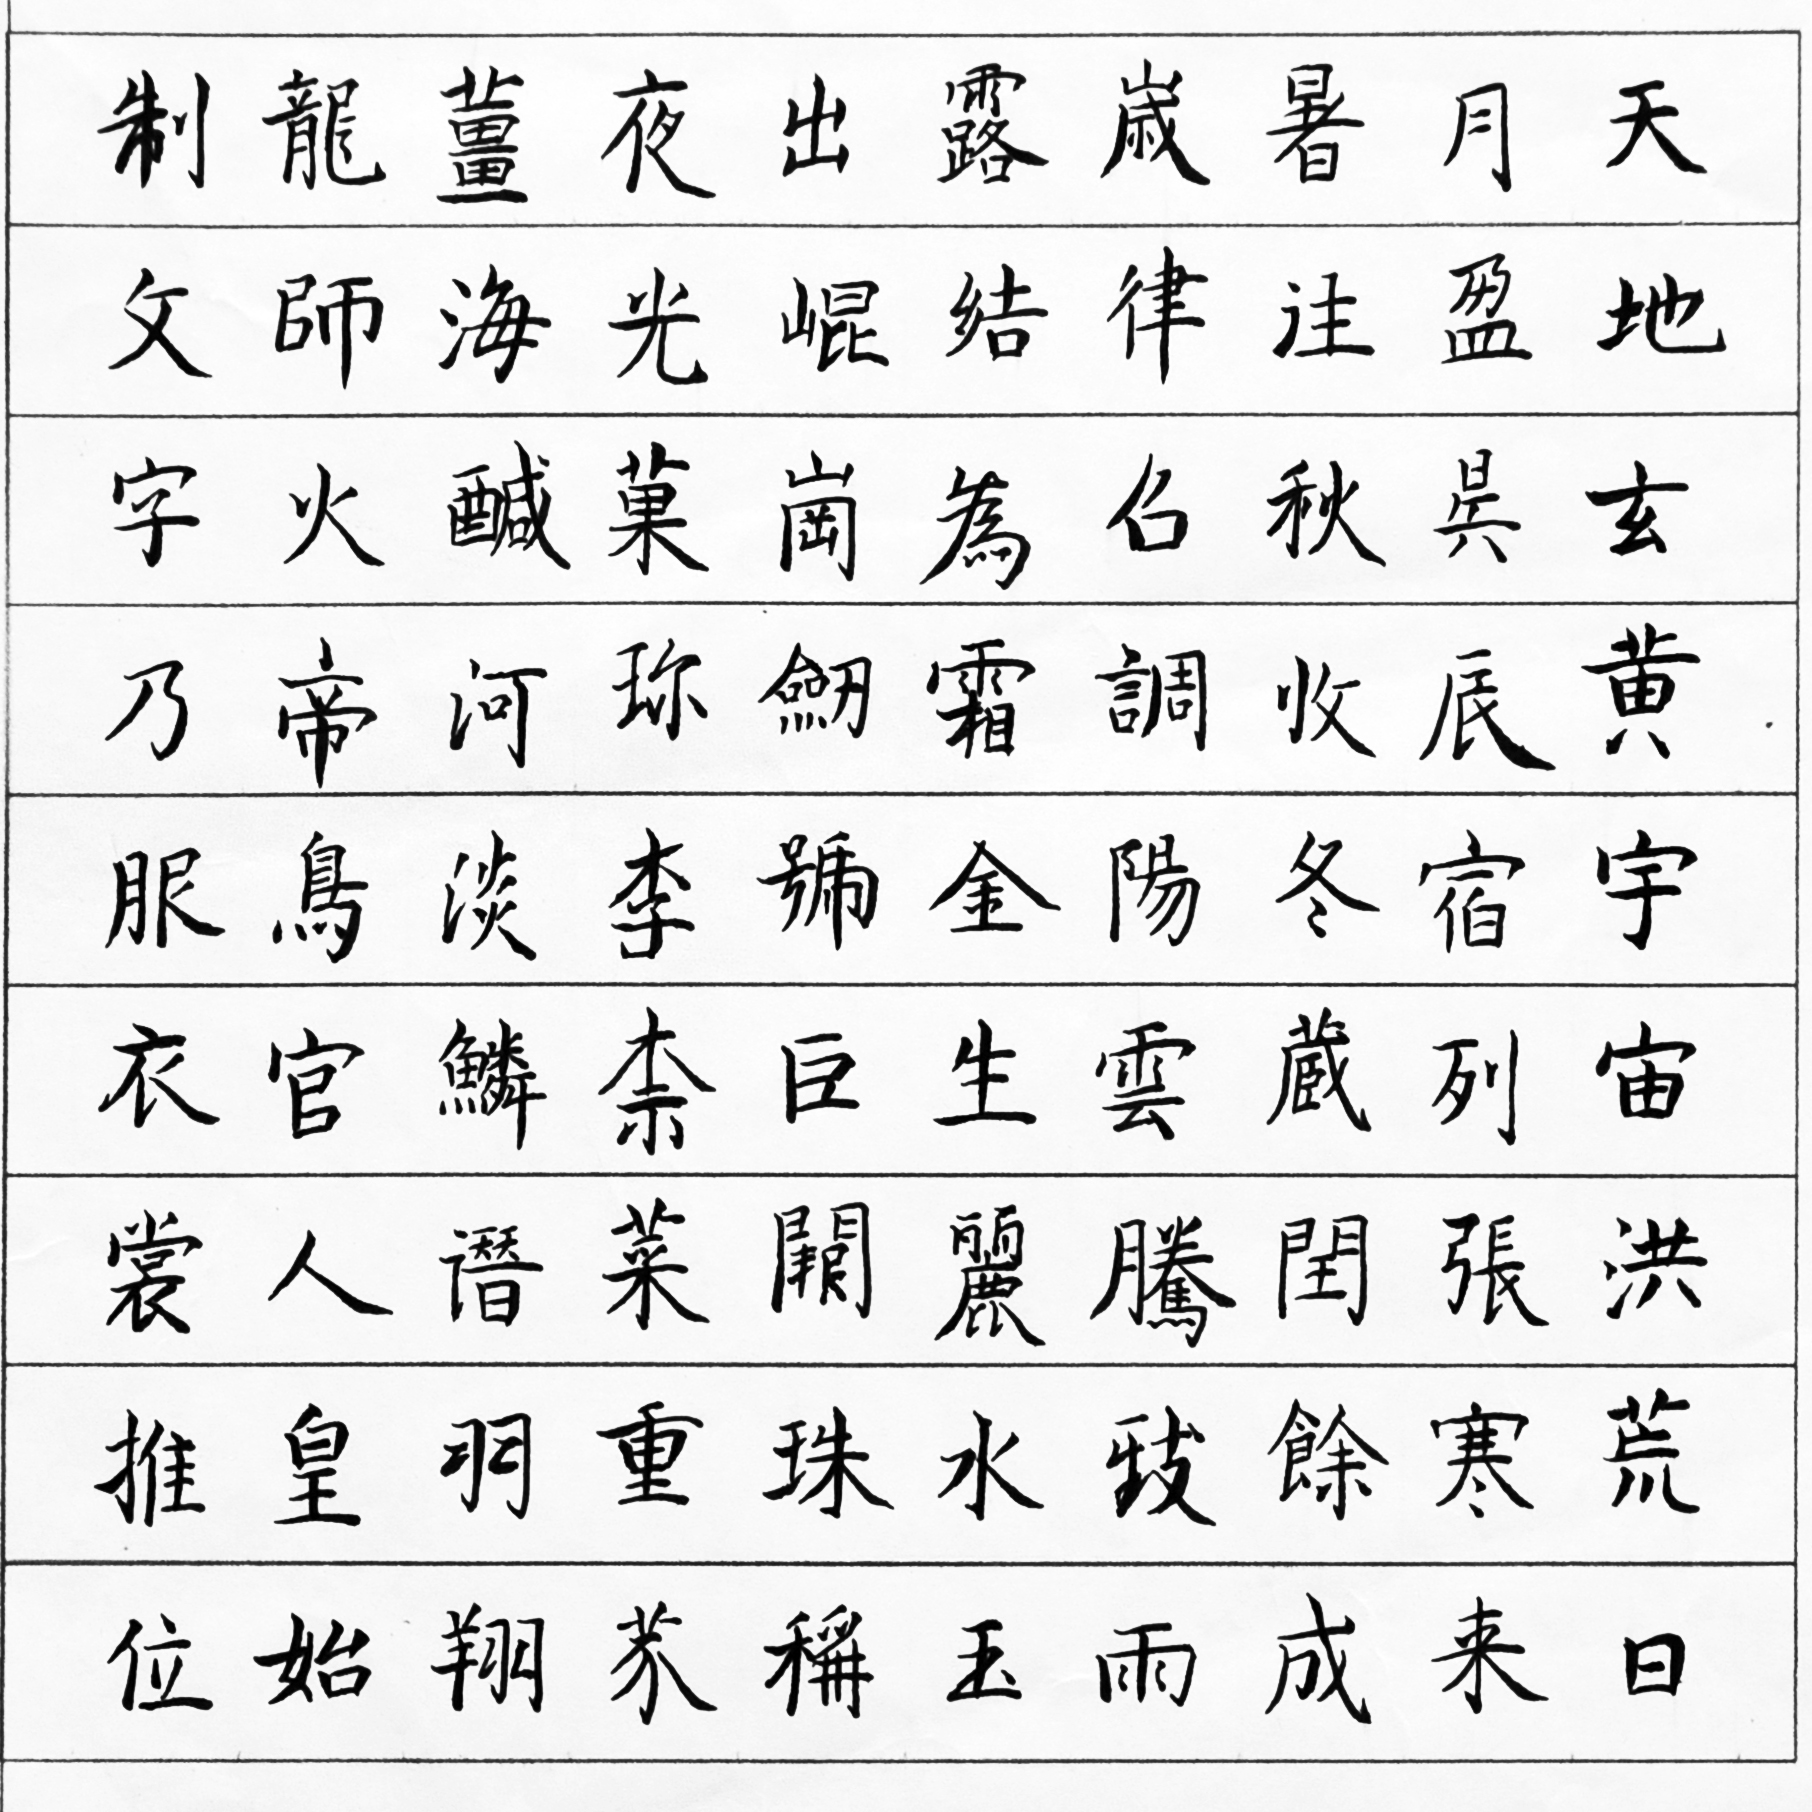 天地玄黄宇宙洪荒日
月盈昃辰宿列張寒来
暑往秋收冬蔵閏餘成
歳律召調陽雲騰致雨
露結為霜金生麗水玉
出崐崗劒號巨闕珠稱
夜光菓珎李柰菜重芥
薑海鹹河淡鱗潛羽翔
龍師火帝鳥官人皇始
制文字乃服衣裳推位